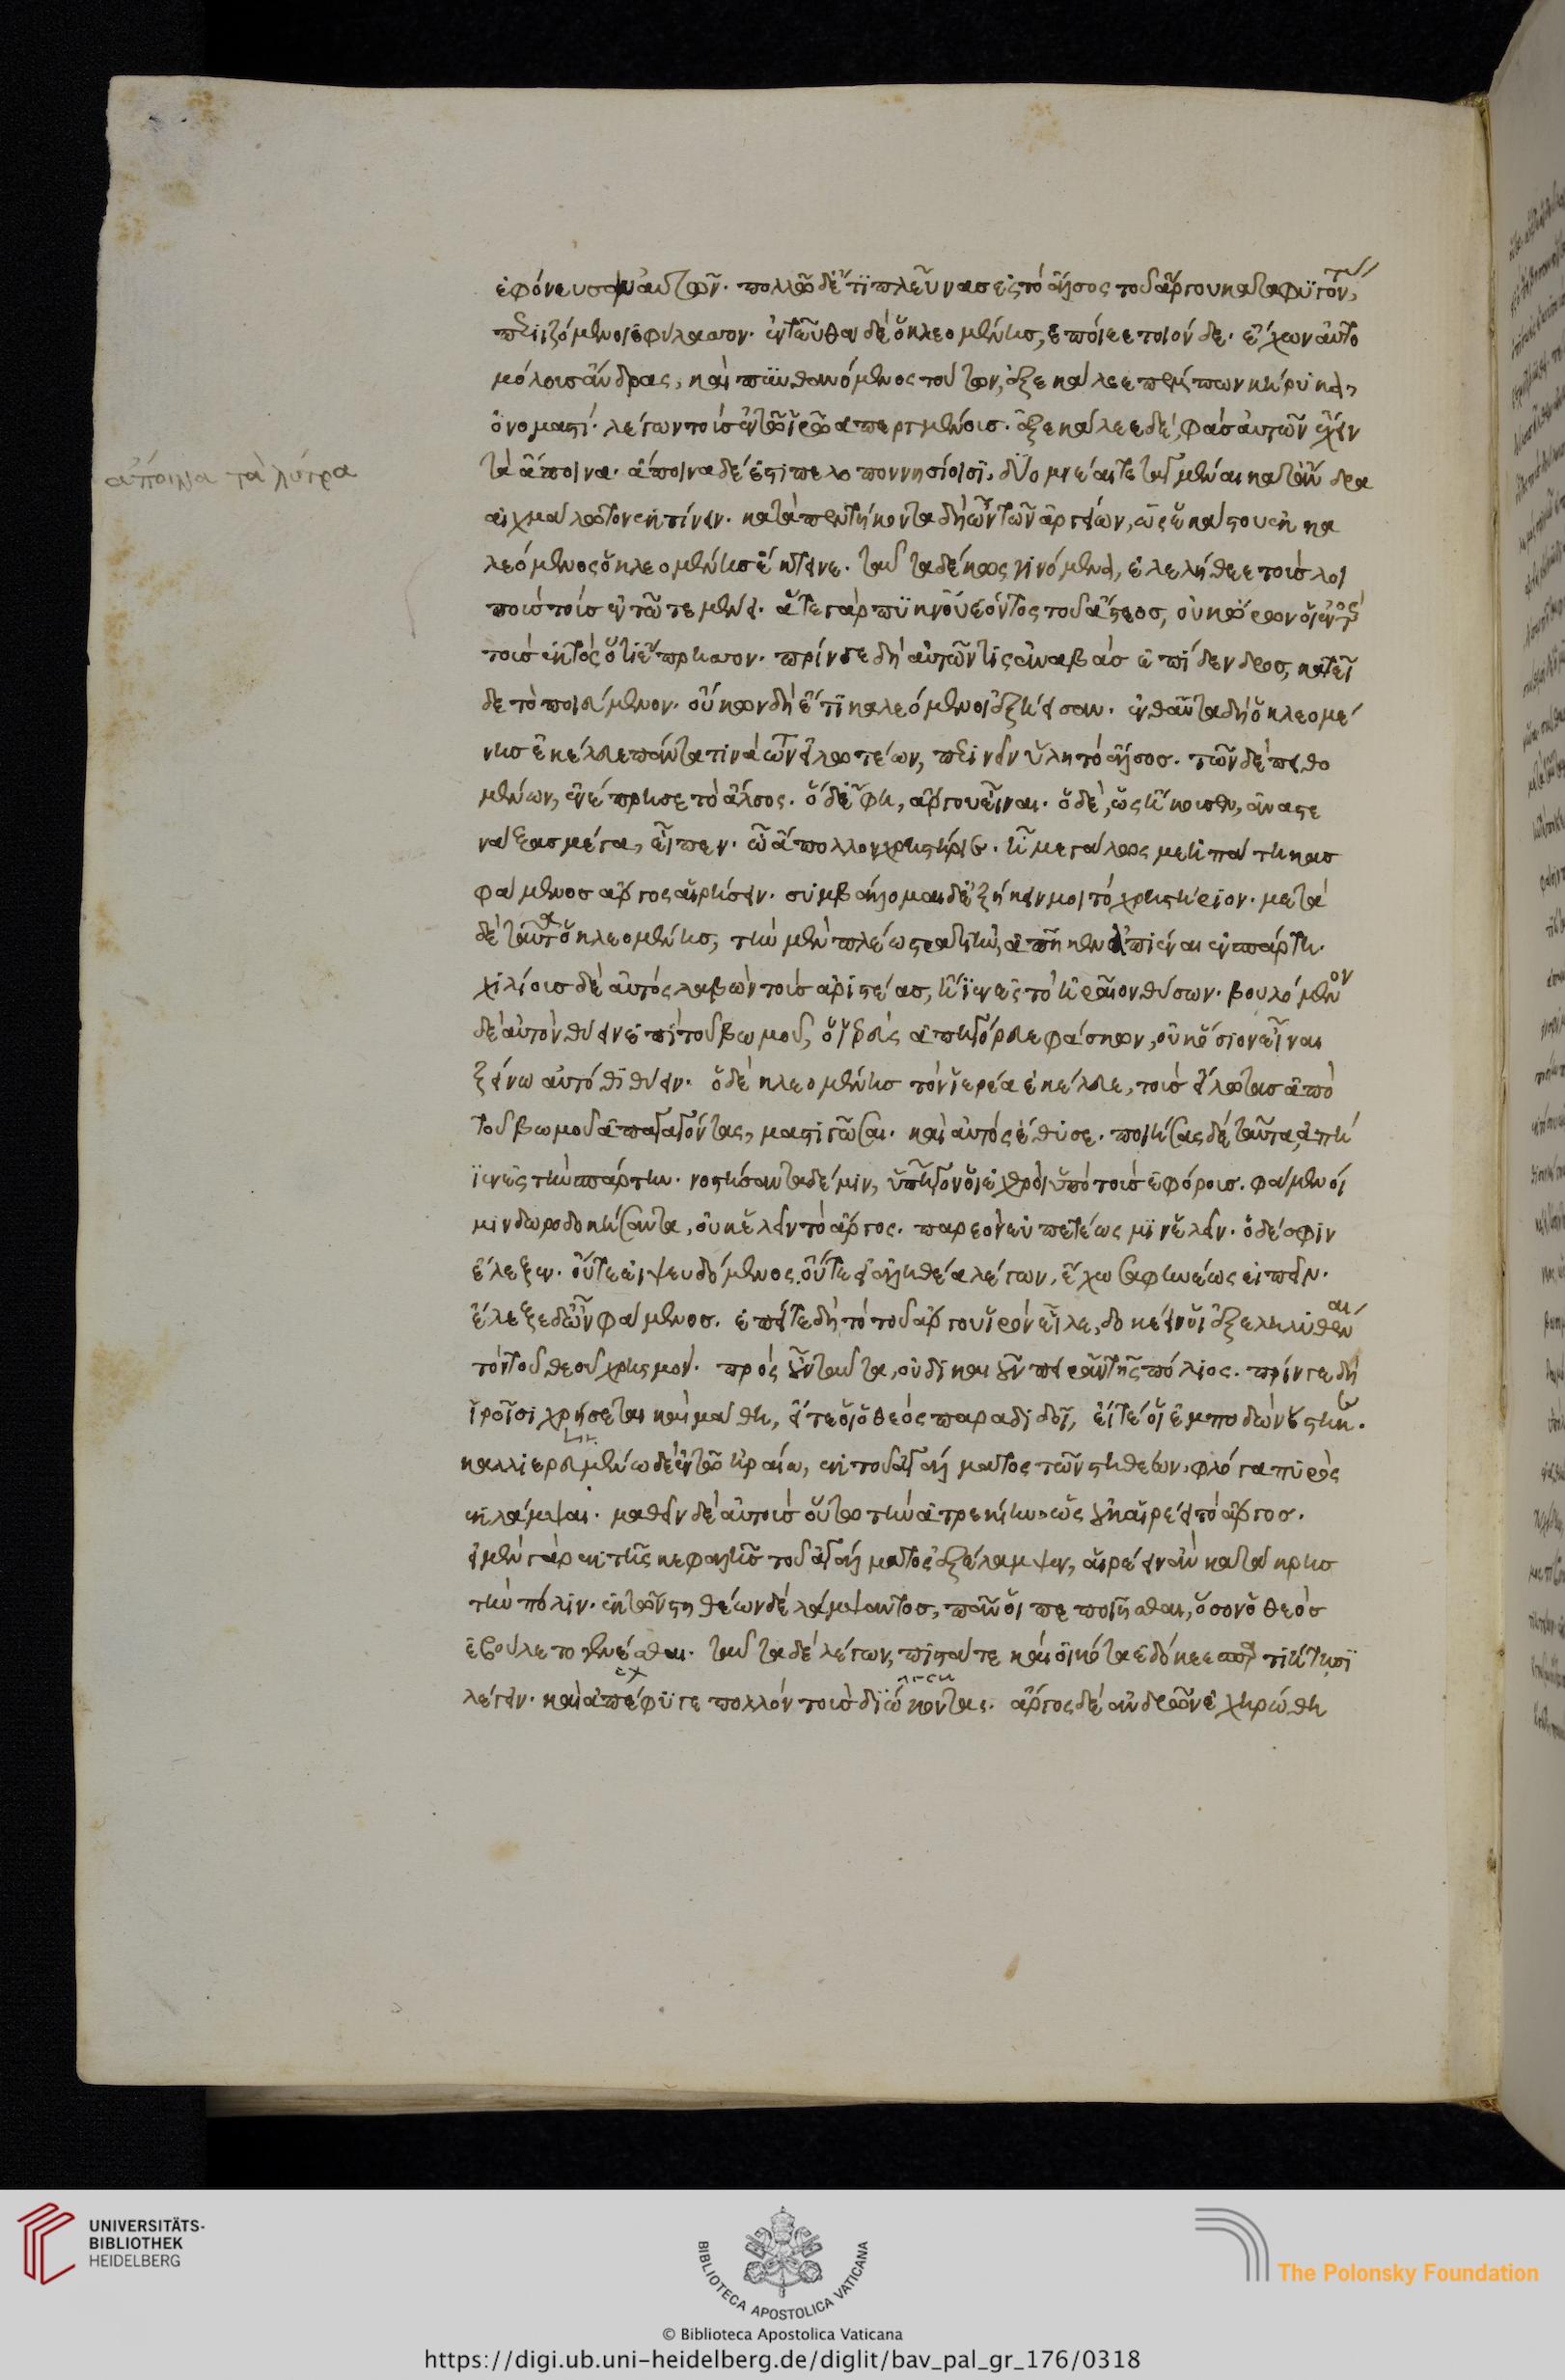 ἐφόνευσαν αὐτῶν. πολλῶ δέ τι πλεῦνας ἐς τὸ ἄλσος τοῦ ἄργου καταφυγόντας
περιιζόμενοι ἐφύλασσον. ἐνταῦθα δὲ ὁ κλεομένης, ἐποίεε τοιόνδε. ἔχων αὐτο
μόλους ἄνδρας, καὶ πυνθανόμενος τούτων, ἐξεκάλεε πέμπων κήρυκα,
ὀνομαστί. λέγων τοὺς ἐν τῶ ἱρῶ ἀπεργμένους. ἐξεκάλεε δέ, φὰς αὐτῶν ἔχειν
τὰ ἄποινα. ἄποινα δέ ἐστι πελοποννησίοισι, δύο μνέαι τεταγμέναι κατ' ἄνδρα
αἰχμάλωτον ἐκτίνειν. κατὰ πεντήκοντα δὴ ὦν τῶν ἀργείων, ὡς ἑκάστους ἐκκα
λεόμενος ὁ κλεομένης ἔκτεινε. ταῦτα δέ κως γινόμενα, ἐλελήθεε τοὺς λοι
ποὺς τοὺς ἐν τῶ τεμένει. ἅτε γὰρ πυκνοῦ ἐόντος τοῦ ἄλσεος, οὐκ ὥρων οἱ ἐντὸς
τοὺς ἐκτὸς ὅτι ἔπρησσον. πρίν γε δὴ αὐτῶν τις ἀναβὰς ἐπὶ δένδρος, κατεῖ
δε τὸ ποιεύμενον. οὔκων δὴ ἔτι καλεόμενοι ἐξήεσαν. ἐνθαῦτα δὴ ὁ κλεομέ
νης ἐκέλευε πάντα τινὰ τῶν εἱλωτέων, περινεῖν ὕλη τὸ ἄλσος. τῶν δὲ πειθο
μένων, ἐνέπρησε τὸ ἄλσος. ὁ δὲ ἔφη, ἄργου εἶναι. ὁ δέ, ὡς ἤκουσε, ἀναστε
νάξας μέγα, εἶπεν. ὦ ἄπολλον χρηστήριε. ἦ μεγάλως με ἠπάτηκας
φάμενος ἄργος αἱρήσειν. συμβάλλομαι δ' ἐξήκειν μοι τὸ χρηστήριον. μετὰ
δὲ ταῦτα ὁ κλεομένης, τὴν μὲν πλέω στρατιὴν, ἀπῆκεν ἀπιέναι ἐς σπάρτην.
χιλίους δὲ αὐτὸς λαβὼν τοὺς ἀριστέας, ἤιεν ἐς τὸ ἡραῖον θύσων. βουλόμενον
δὲ αὐτὸν θύειν ἐπὶ τοῦ βωμοῦ, ὁ ἱρεὺς ἀπηγόρευε φάσκων, οὐκ ὅσιον εἶναι
ξείνω αὐτόθι θύειν. ὁ δὲ κλεομένης τὸν ἱερέα ἐκέλευε, τοὺς εἵλωτας ἀπὸ
τοῦ βωμοῦ ἀπαγαγόντας, μαστιγῶσαι. καὶ αὐτὸς ἔθυσε. ποιήσας δὲ ταῦτα, ἀπή
ιεν ἐς τὴν σπάρτην. νοστήσαντα δέ μιν, ὑπῆγον οἱ ἐχθροὶ ὑπὸ τοὺς ἐφόρους. φάμενοί
μιν δωροδοκήσαντα, οὐκ ἑλεῖν τὸ ἄργος. παρεὸν εὐπετέως μιν ἑλεῖν. ὁ δέ σφιν
ἔλεξεν. οὔτε εἰ ψευδόμενος, οὔτε εἰ ἀληθέα λέγων, ἔχω σαφηνέως εἰπεῖν.
ἔλεξε δ' ὦν φάμενος. ἐπείτε δὴ τὸ τοῦ ἄργου ἱρὸν εἷλε, δοκέειν οἱ ἐξεληλυθέναι
τὸν τοῦ θεοῦ χρησμόν. πρὸς ὦν ταῦτα, οὐ δικαιοῦν πειρᾶν τῆς πόλιος. πρίν γε δὴ
ἱροῖσι χρήσεται καὶ μάθη, εἴτε οἱ ὁ θεὸς παραδιδοῖ, εἴτε οἱ ἐμποδὼν ἕστηκε.
καλλιερευμένω δὲ ἐν τῶ ἡραίω, ἐκ τοῦ ἀγάλματος τῶν στηθέων, φλόγα πυρὸς
ἐκλάμψαι. μαθεῖν δὲ αὐτὸς οὕτω τὴν ἀτρεκίην, ὡς οὐκ αἱρέει τὸ ἄργος.
εἰ μὲν γὰρ ἐκ τῆς κεφαλῆς τοῦ ἀγάλματος ἐξέλαμψεν, αἱρέειν ἂν κατάκρης
τὴν πόλιν. ἐκ τῶν στηθέων δὲ λάμψαντος, πᾶν οἱ πεποιῆσθαι, ὅσον ὁ θεὸς
ἐβούλετο γενέσθαι. ταῦτα δὲ λέγων, πιστά τε καὶ οἰκότα ἐδόκεε σπαρτιήτησι
λέγειν. καὶ ἀπέφυγε πολλὸν τοὺς διώκοντας. ἄργος δὲ ἀνδρῶν ἐχηρώθη
ἄποινα τὰ λύτρα
UNIVERSITÄTS-
BIBLIOTHEK
HEIDELBERG
BIBLIOTECA APOSTOLICA VATICANA
The Polonsky Foundation
© Biblioteca Apostolica Vaticana
https://digi.ub.uni-heidelberg.de/diglit/bav_pal_gr_176/0318